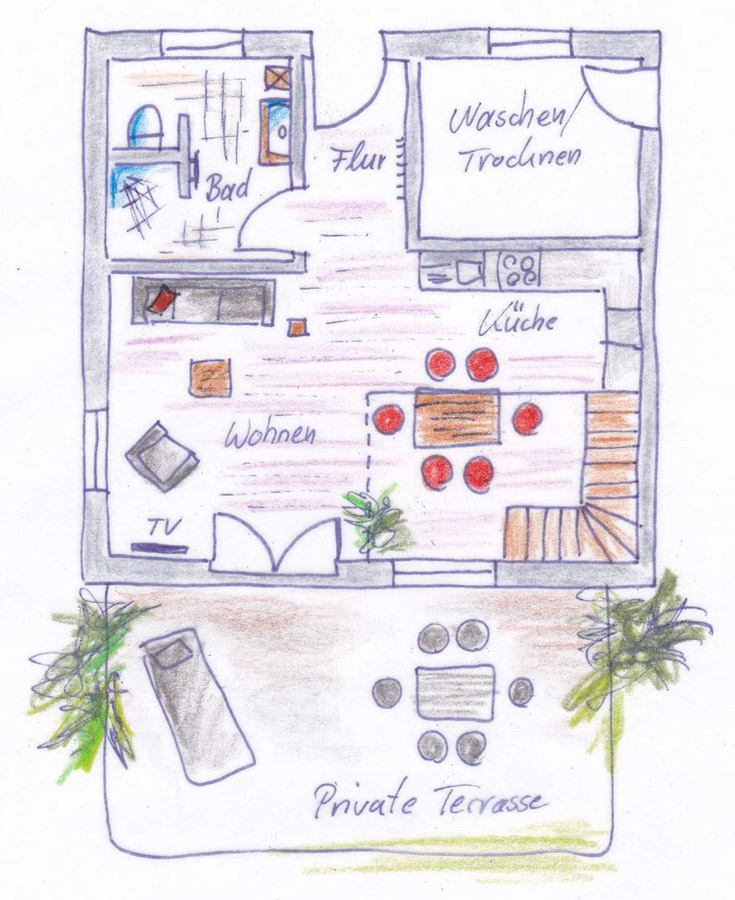 Waschen/
Trocknen
Flur
Bad
Küche
Wohnen
TV
Private Terrasse